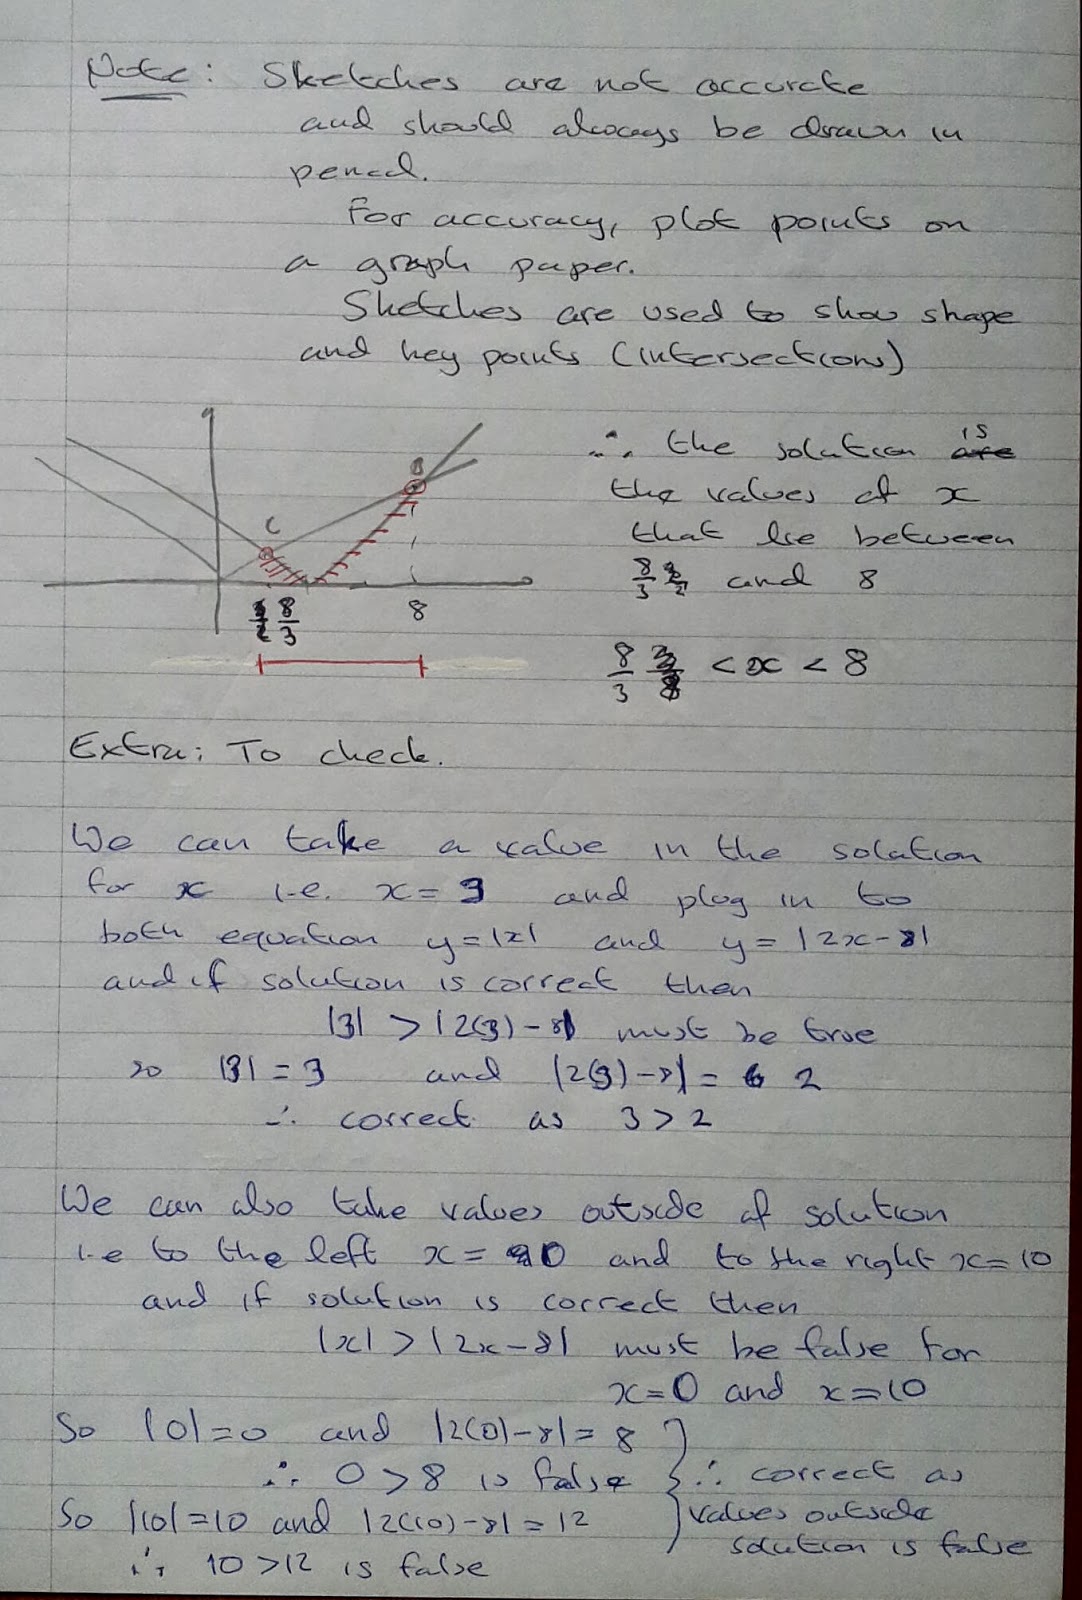 Note: Sketches are not accurate
and should always be drawn in
pencil.
For accuracy, plot points on
a graph paper.
Sketches are used to show shape
and key points (intersections)
C
B
8/3
8
∴ the solution is
the values of x
that lie between
8/3 and 8
8/3 < x < 8
Extra: To check.
We can take a value in the solution
for x i.e. x = 3 and plug in to
both equation y = |x| and y = |2x-8|
and if solution is correct then
|3| > |2(3)-8| must be true
so |3| = 3 and |2(3)-8| = 2
∴ correct as 3 > 2
We can also take values outside of solution
i.e to the left x = 0 and to the right x = 10
and if solution is correct then
|x| > |2x-8| must be false for
x=0 and x=10
So |0|=0 and |2(0)-8|= 8
∴ 0 > 8 is false
So |10|=10 and |2(10)-8|= 12
∴ 10 > 12 is false
∴ correct as
values outside
solution is false